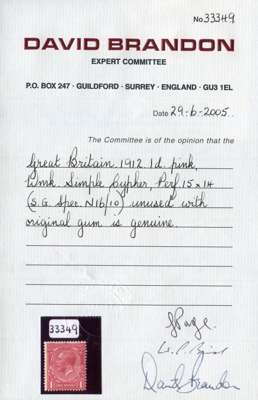 No. 33349
DAVID BRANDON
EXPERT COMMITTEE
P.O. BOX 247 · GUILDFORD · SURREY · ENGLAND · GU3 1EL
Date 29-6-2005.
The Committee is of the opinion that the
Great Britain 1912 1d. pink,
Wmk Simple Cypher, Perf. 15 x 14
(S.G. Spec. N16(10)) unused with
original gum is genuine.
33349
David Brandon